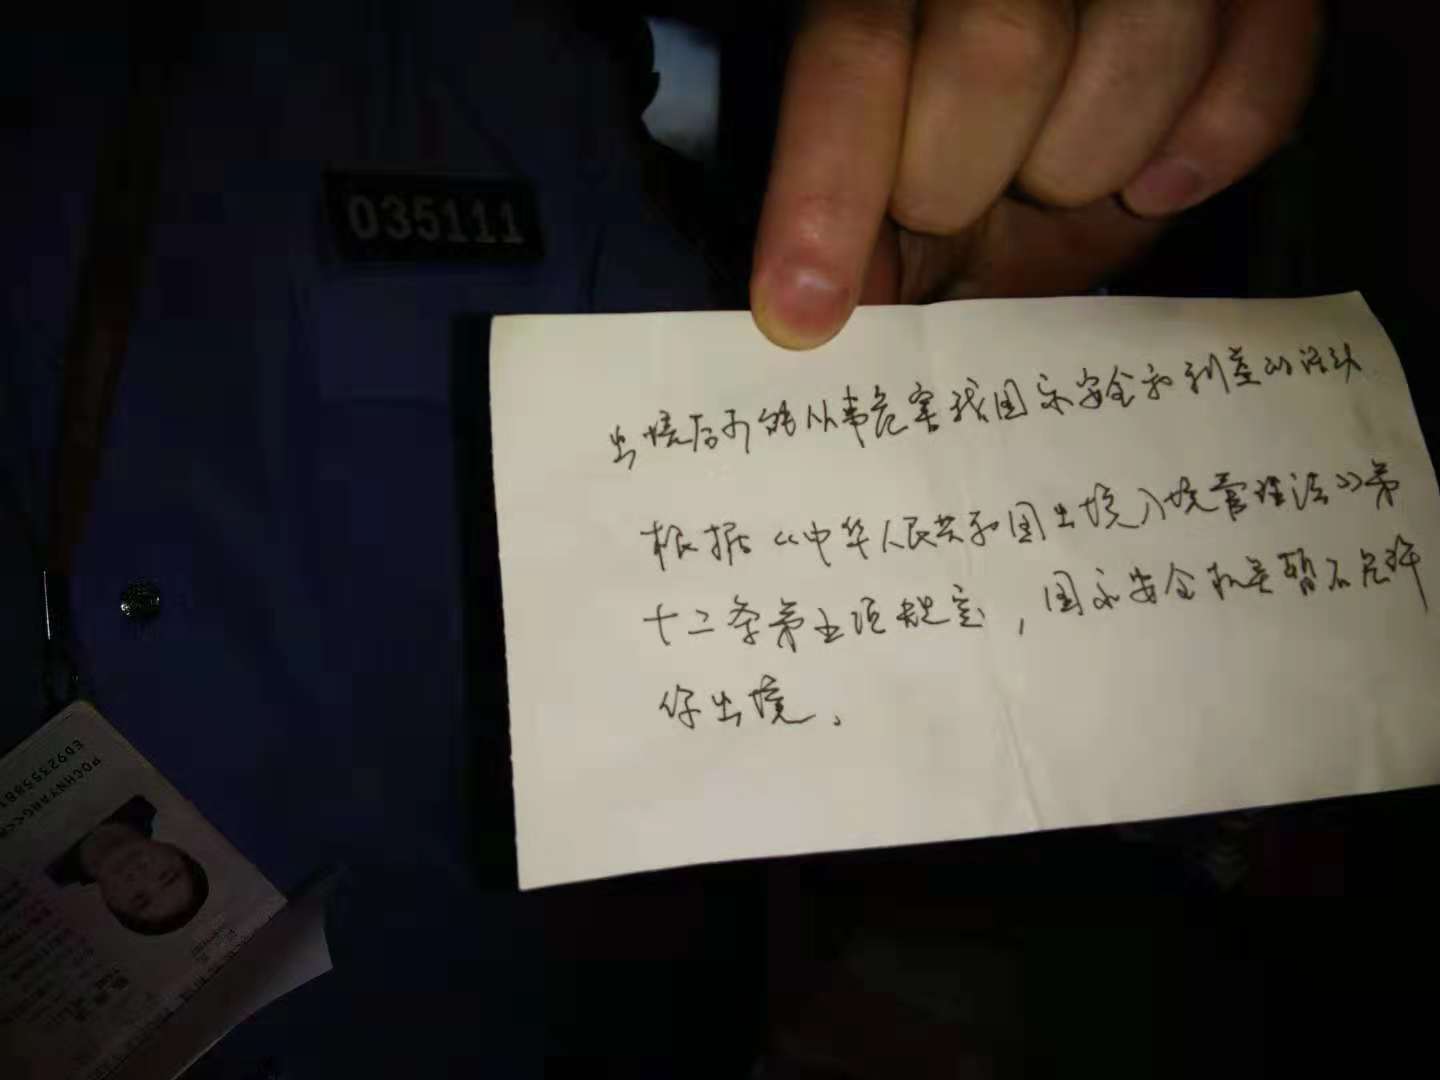 035111
出境后可能从事危害我国家安全和利益的活动
根据《中华人民共和国出境入境管理法》第
十二条第五项规定，国家安全机关暂不允许
你出境。
POCHNYANG<<